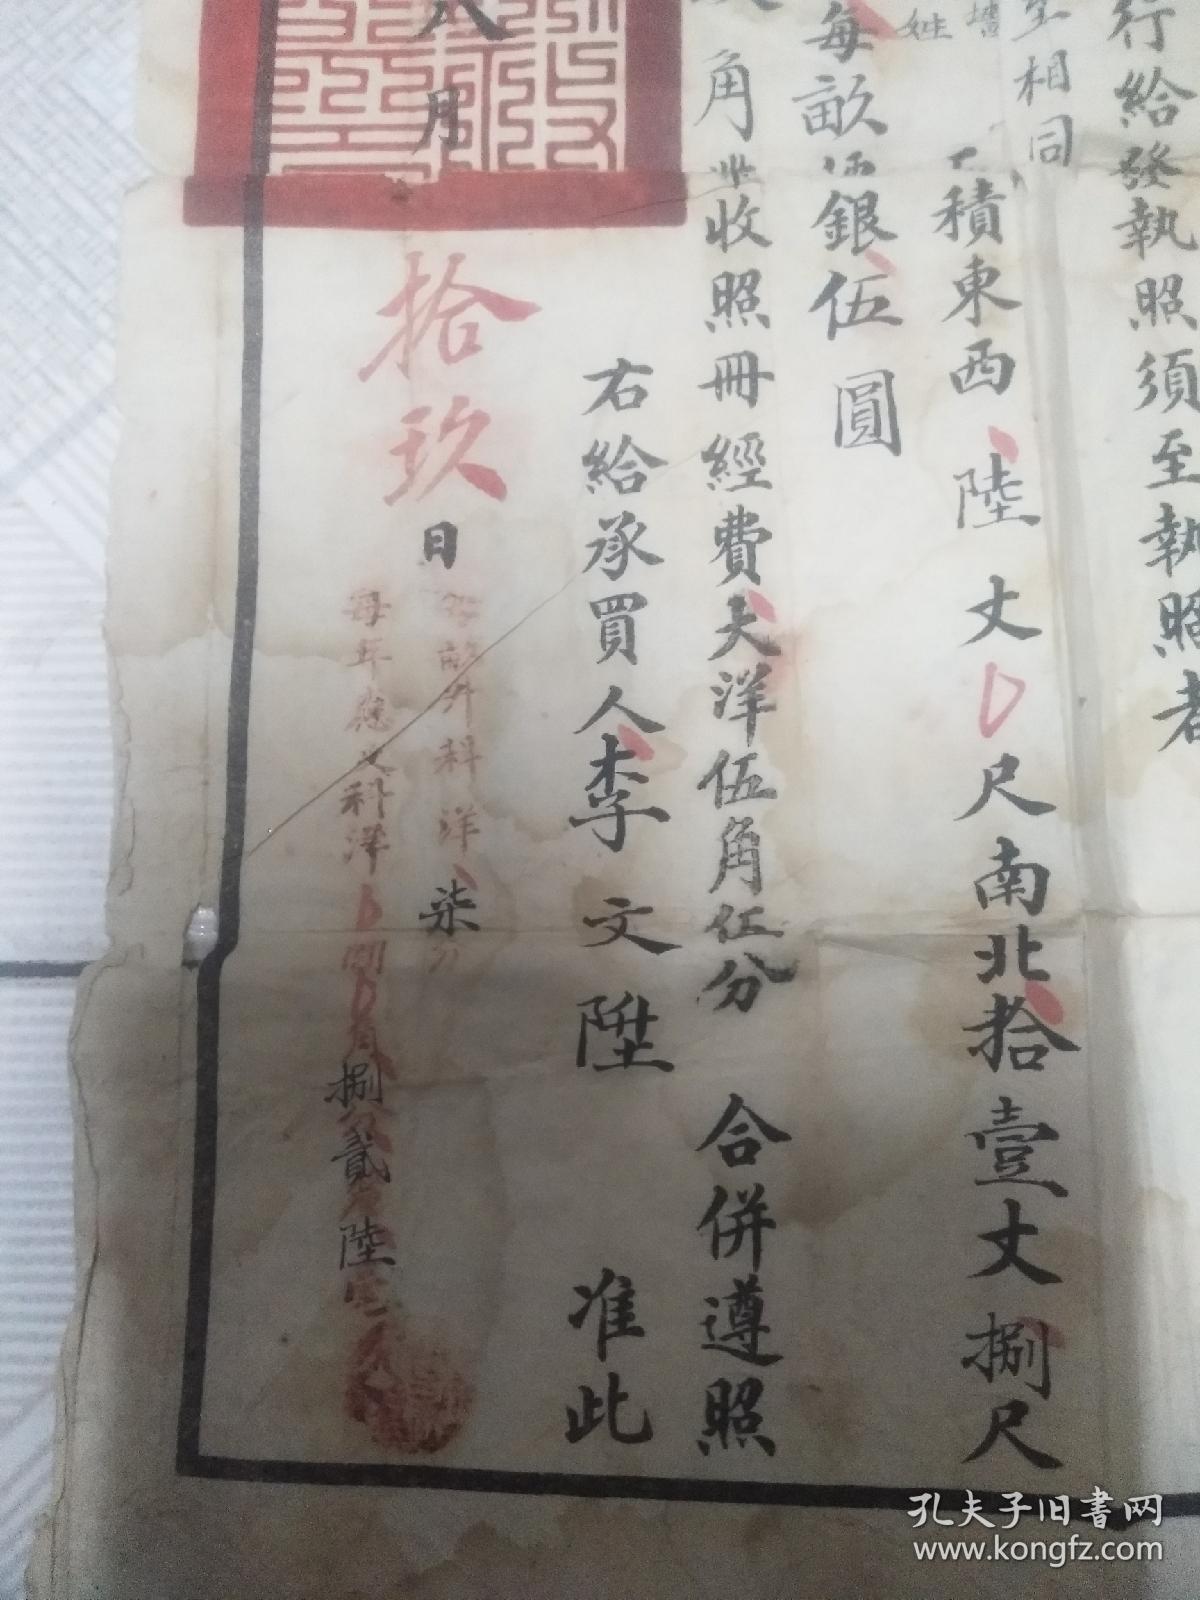 行給發執照須至執照者
至相同
姓
積東西陸丈尺南北拾壹丈捌尺
每畝銀伍圓
角並收照冊經費大洋伍角伍分 合併遵照
右給承買人李文陞 准此
八月拾玖日
每畝升科洋柒分
每年應交科洋捌分貳陸
孔夫子旧书网
www.kongfz.com